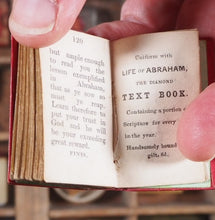 120
but ample enough
to read you the
lesson exemplified
in Abraham,
that as ye sow so
must ye reap.
Learn therefore to
put your trust in
God and he will
be your exceeding
great reward.
FINIS.
Uniform with
LIFE OF ABRAHAM,
THE DIAMOND
TEXT BOOK.
Containing a portion of
Scripture for every
in the year.
Handsomely bound
gilt, &c.